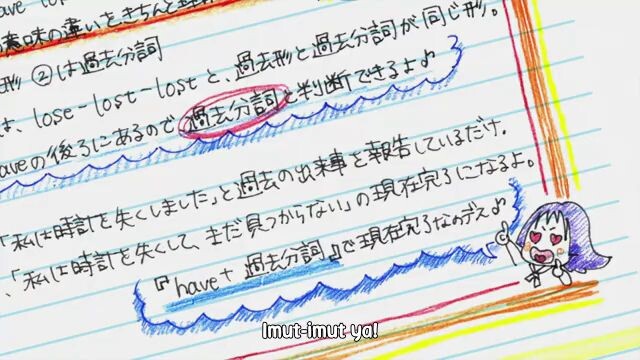 意味の違いをきちんと
形 ②は過去分詞
は、lose-lost-lostと、過去形と過去分詞が同じ形。
aveの後ろにあるので過去分詞と判断できるよ♪
「私は時計を失くしました」と過去の出来事を報告しているだけ。
、「私は時計を失くして、まだ見つからない」の現在完了になるよ。
『have+過去分詞』で現在完了なのデス♪
Imut-imut ya!